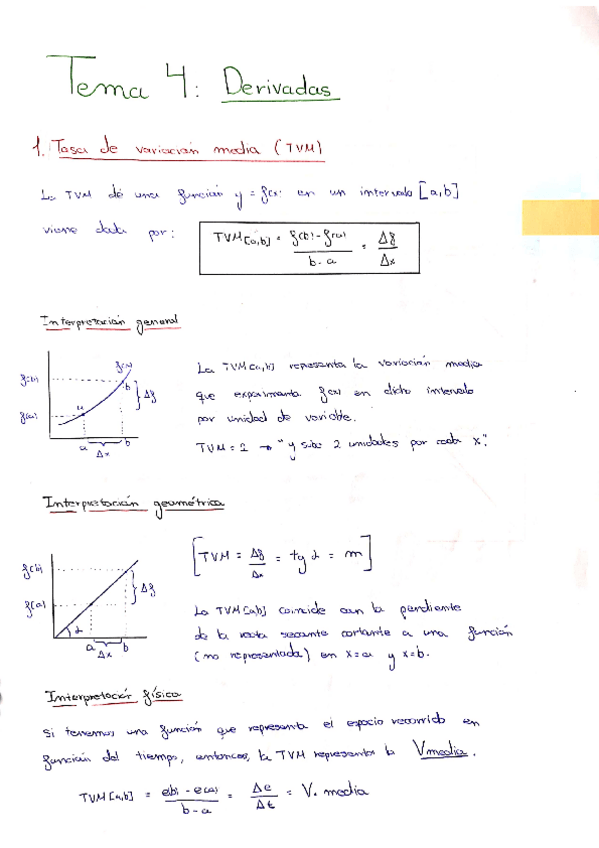 Tema 4: Derivadas
1. Tasa de variación media (TVM)
La TVM de una función y = f(x) en un intervalo [a,b]
viene dada por: TVM[a,b] = f(b) - f(a) / b - a = Δf / Δx
Interpretación general
f(x)
f(b)
b
Δf
f(a)
a
a b
Δx
La TVM[a,b] representa la variación media
que experimenta f(x) en dicho intervalo
por unidad de variable.
TVM = 2 → "y sube 2 unidades por cada x".
Interpretación geométrica
f(b)
Δf
f(a)
α
a b
Δx
[TVM = Δf / Δx = tg α = m]
La TVM[a,b] coincide con la pendiente
de la recta secante cortante a una función
(no representada) en x=a y x=b.
Interpretación física
Si tenemos una función que representa el espacio recorrido en
función del tiempo, entonces, la TVM representa la Vmedia.
TVM[a,b] = e(b) - e(a) / b - a = Δe / Δt = V. media